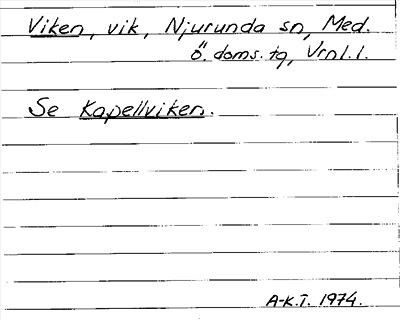 Viken, vik, Njurunda sn, Med.
ö. doms. tg, Vrnl. l.
Se Kapellviken.
A-K.T. 1974.